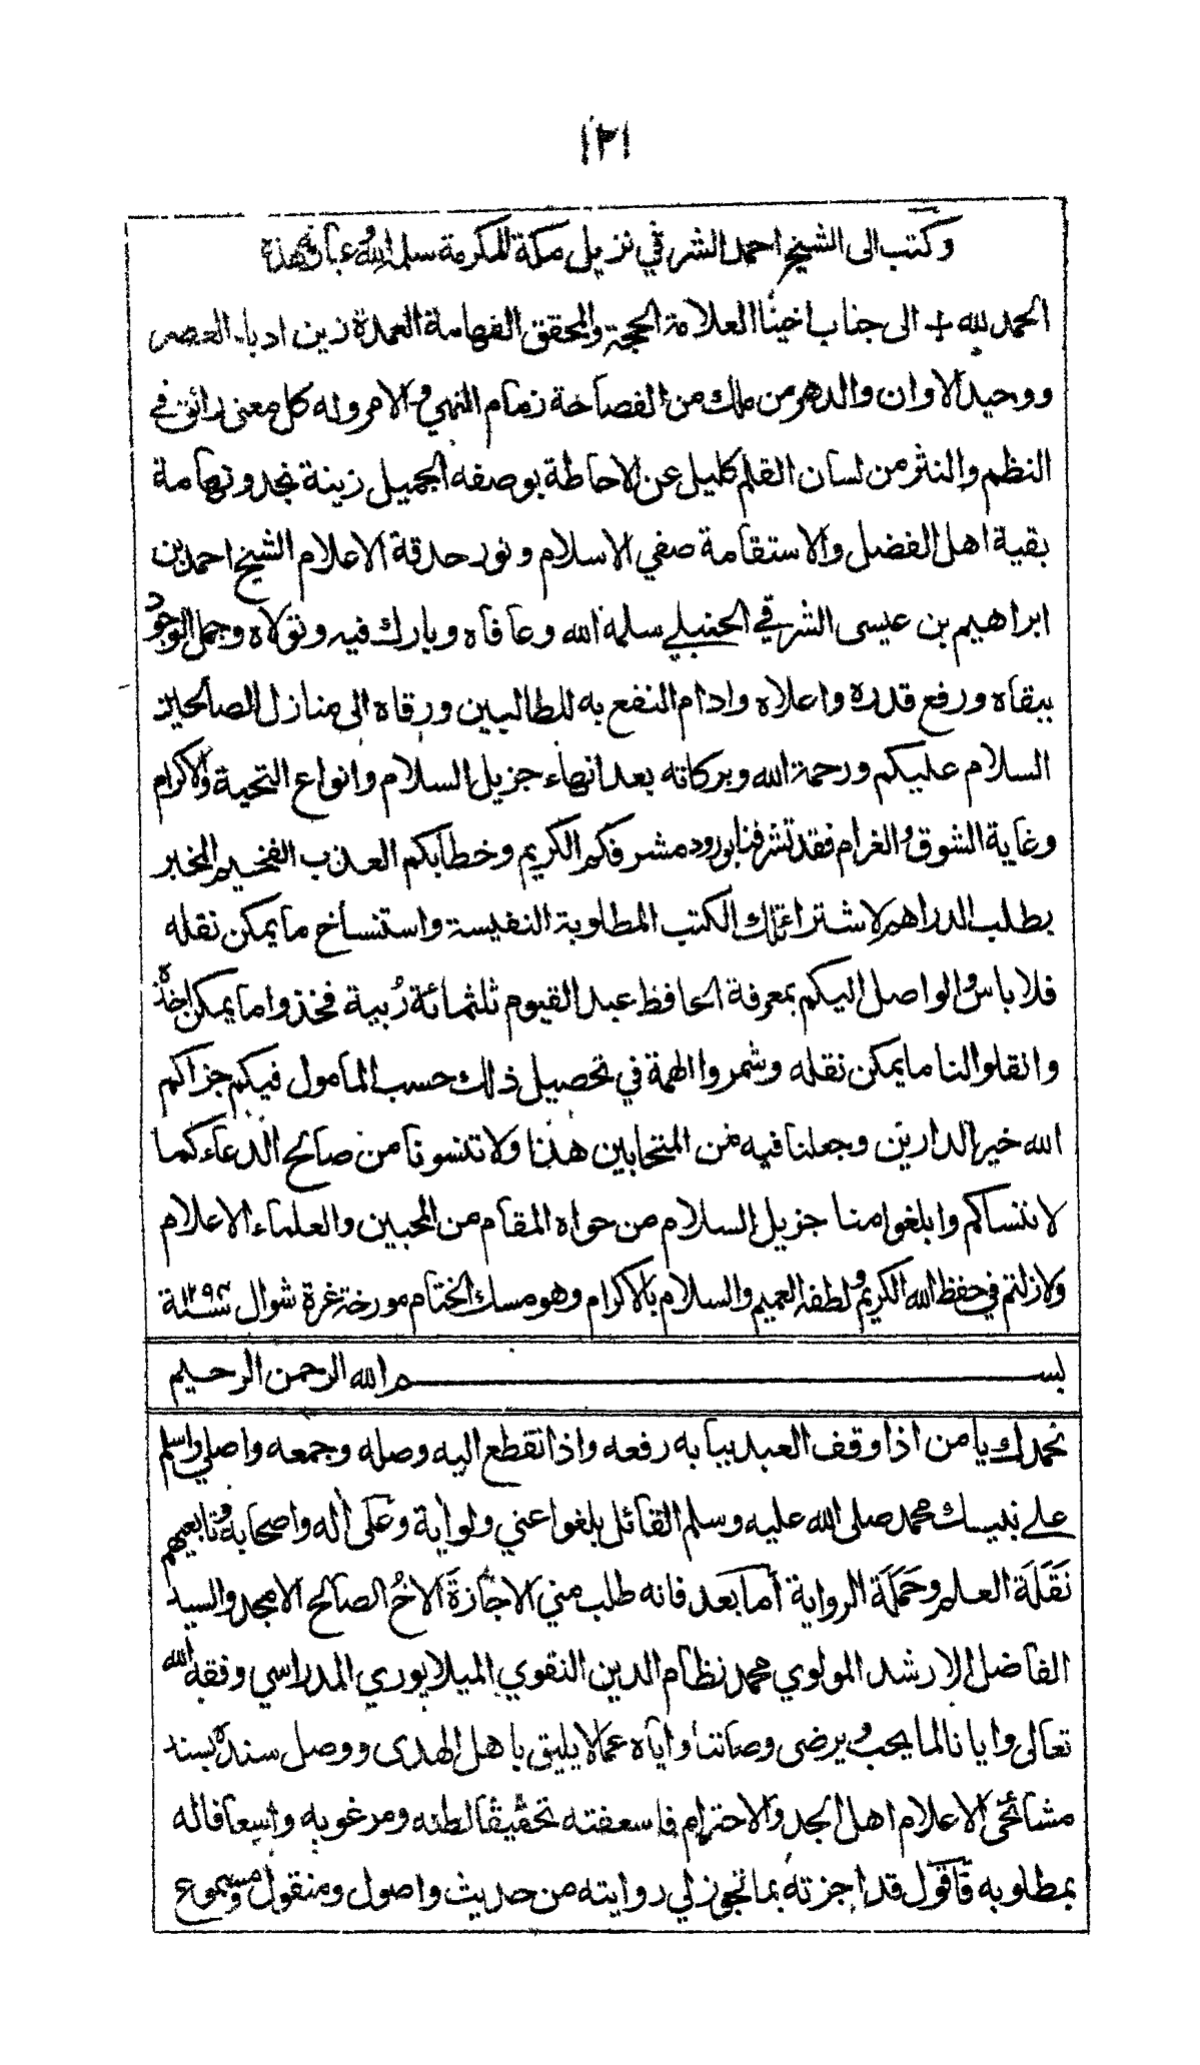 ١٢١
وكتب الى الشيخ احمد الشرقي نزيل مكة المكرمة سلمه الله وعافاه هذه
الحمد لله + الى جناب اخينا العلامة الحجة والمحقق الفهامة العمدة زين ادباء العصر
ووحيد الاوان والدهر من ملك من الفصاحة زمام النهي والامر وله كل معنى رائق في
النظم والنثر من لسان القلم كليل عن الاحاطة بوصفه الجميل زينة نجد وتهامة
بقية اهل الفضل والاستقامة صفي الاسلام ونور حدقة الاعلام الشيخ احمد بن
ابراهيم بن عيسى الشرقي الحنبلي سلمه الله وعافاه وبارك فيه وتولاه وجمل الوجود
ببقاه ورفع قدره واعلاه وادام النفع به للطالبين ورقاه الى منازل الصالحين
السلام عليكم ورحمة الله وبركاته بعد انهاء جزيل السلام وانواع التحية والاكرام
وغاية الشوق والغرام فقد تشرفنا بورود مشرفكم الكريم وخطابكم العذب الفخيم المخبر
بطلب الدراهم لاشتراء تلك الكتب المطلوبة النفيسة واستنساخ ما يمكن نقله
فلا باس والواصل اليكم بمعرفة الحافظ عبد القيوم ثلثمائة رُبية فخذوا ما يمكن اخذه
وانقلوا لنا ما يمكن نقله وشمروا الهمة في تحصيل ذلك حسب المأمول فيكم جزاكم
الله خير الدارين وجعلنا فيه من المتحابين هذا ولا تنسونا من صالح الدعاء كما
لا ننساكم وابلغوا منا جزيل السلام من حواه المقام من المحبين والعلماء الاعلام
ولا زلتم في حفظ الله الكريم ولطفه العميم والسلام بالاكرام وهو مسك الختام مورخة غرة شوال سنة ١٢٩٦
بسم الله الرحمن الرحيم
نحمدك يا من اذا وقف العبد ببابه رفعه واذا انقطع اليه وصله وجمعه واصلي واسلم
على نبيك محمد صلى الله عليه وسلم القائل بلغوا عني ولو أية وعلى أله واصحابه وتابعيهم
نَقَلَة العلم وحَمَلَة الرواية أما بعد فانه طلب مني الاجازةَ الاخُ الصالح الامجد والسيد
الفاضل الارشد المولوي محمد نظام الدين النقوي الميلابوري المدراسي وفقه الله
تعالى وايانا لما يحب ويرضى وصاننا واياه عما لا يليق باهل الهدى ووصل سنده بسند
مشائخي الاعلام اهل المجد والاحترام فاسعفته تحقيقا لظنه ومرغوبه واسعافا له
بمطلوبه فاقول قد اجزته بما تجوز لي روايته من حديث واصول ومنقول ومسموع